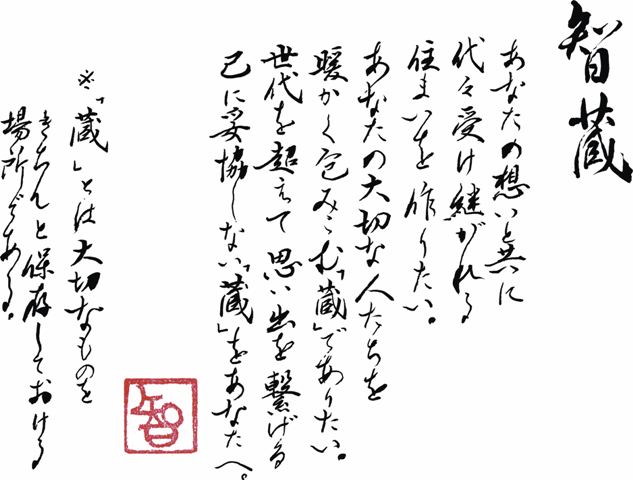 智蔵
あなたの想いと共に
代々受け継がれる
住まいを作りたい。
あなたの大切な人たちを
暖かく包みこむ「蔵」でありたい。
世代を超えて思い出を繋げる
己に妥協しない「蔵」をあなたへ。
智
※「蔵」とは大切なものを
きちんと保存しておける
場所である。